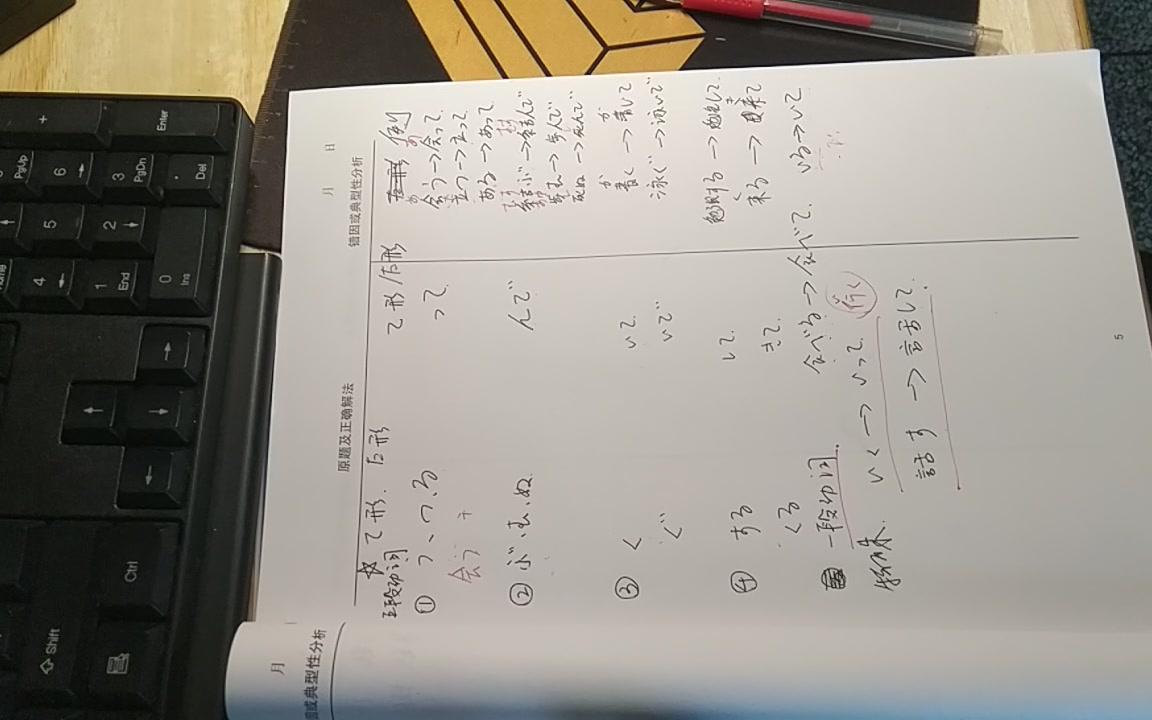 月 日
原题及正确解法 错因或典型性分析
☆ て形、た形 て形/た形 例
五段动词
① う、つ、る って 会う→会って
会う
立つ→立って
ある→あって
② ぶ、む、ぬ んで
死ぬ→死んで
③ く いて 書く→書いて
ぐ いで 泳ぐ→泳いで
④ する して 勉強する→勉強して
くる きて 来る→来て
一段动词 食べる→食べて いる→いて
特殊 いく→いって 行く
話す→話して
5
月
因或典型性分析
Shift
Ctrl
+
Enter
PgUp
6
3
PgDn
.
Del
5
2
4
1
End
0
Ins